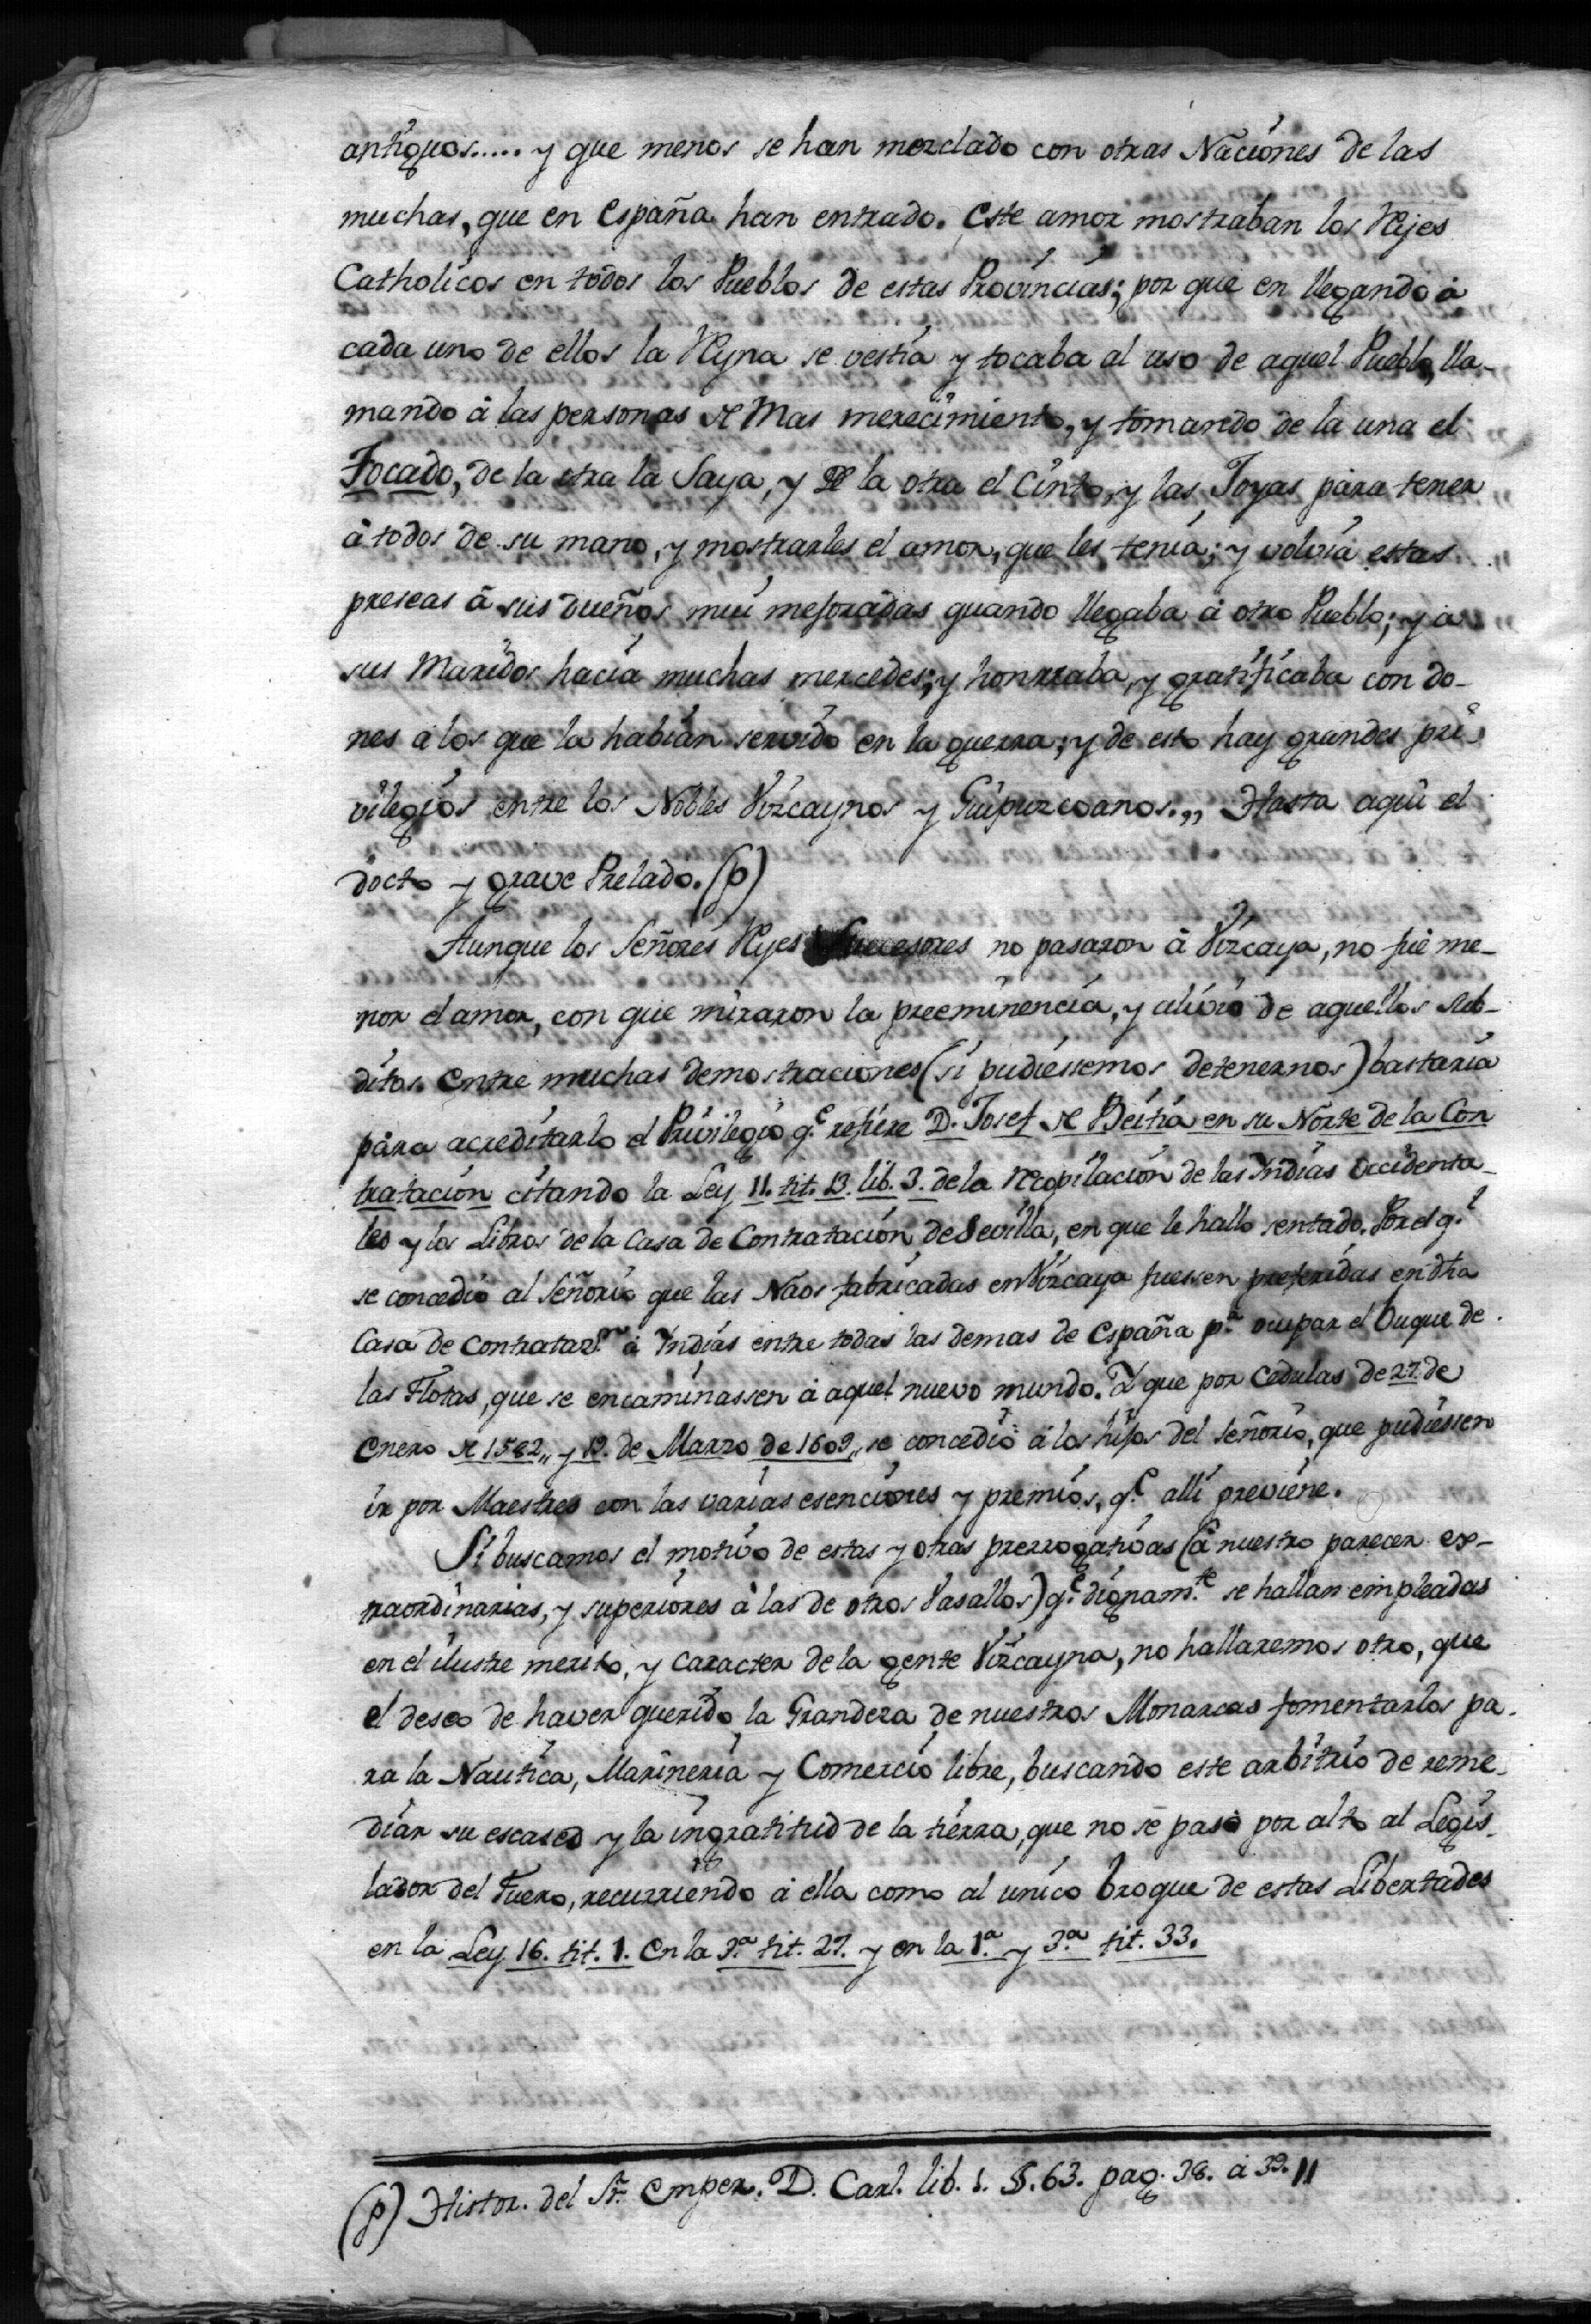 antiguos..... y que menos se han mezclado con otras Naciones de las
muchas, que en España han entrado. Este amor mostraban los Reyes
Catholicos en todos los Pueblos de estas Provincias; por que en llegando à
cada uno de ellos la Reyna se vestia y tocaba al uso de aquel Pueblo, lla-
mando à las personas de Mas merecimiento, y tomando de la una el
Tocado, de la otra la Saya, y de la otra el Cinto, y las Joyas para tener
à todos de su mano, y mostrarles el amor, que les tenia; y volvia estas
preseas à sus dueños mui mejoradas quando llegaba à otro Pueblo; y à
sus Maridos hacia muchas mercedes; y honrraba, y gratificaba con do-
nes à los que la habian servido en la guerra; y de esto hay grandes pri-
vilegios entre los Nobles Vizcaynos y Guipuzcoanos.,, Hasta aqui el
docto y grave Prelado. (p)
Aunque los Señores Reyes Succesores no pasaron à Vizcaya, no fuè me-
nor el amor, con que miraron la preeminencia, y alivio de aquellos sub-
ditos. Entre muchas demostraciones (si pudiessemos detenernos) bastaria
para acreditarlo el Privilegio q.e refiere D. Josef de Beitia en su Norte de la Con
tratacion citando la Ley 11. tit. 13. lib. 3. de la Recopilacion de las Indias Occidenta-
les y los Libros de la Casa de Contratacion de Sevilla, en que le hallo sentado. Por el q.l
se concedió al Señorio que las Naos fabricadas en Vizcaya fuessen preferidas en dha
Casa de Contratac.n à Indias entre todas las demas de España p.a ocupar el Buque de
las Flotas, que se encaminassen à aquel nuevo mundo. Y que por Cedulas de 27. de
Enero de 1582,, y 19. de Marzo de 1609,, se concedió à los hijos del Señorio, que pudiessen
ir por Maestres con las varias esenciones y premios, q.e alli previene.
Si buscamos el motivo de estas y otras prerrogativas (à nuestro parecer ex-
traordinarias, y superiores à las de otros Vasallos) q.e dignam.te se hallan empleadas
en el ilustre merito, y caracter de la gente Vizcayna, no hallaremos otro, que
el deseo de haver querido la Grandeza de nuestros Monarcas fomentarlos pa-
ra la Nautica, Marineria y Comercio libre, buscando este arbitrio de reme-
diar su escased y la ingratitud de la tierra, que no se pasò por alto al Legis-
lador del Fuero, recurriendo à ella como al unico broque de estas Libertades
en la Ley 16. tit. 1. En la 3.a tit. 27. y en la 1.a y 3.a tit. 33.
(p) Histor. del Sr. Emper. D. Carl. lib. 1. §. 63. pag. 38. à 39.